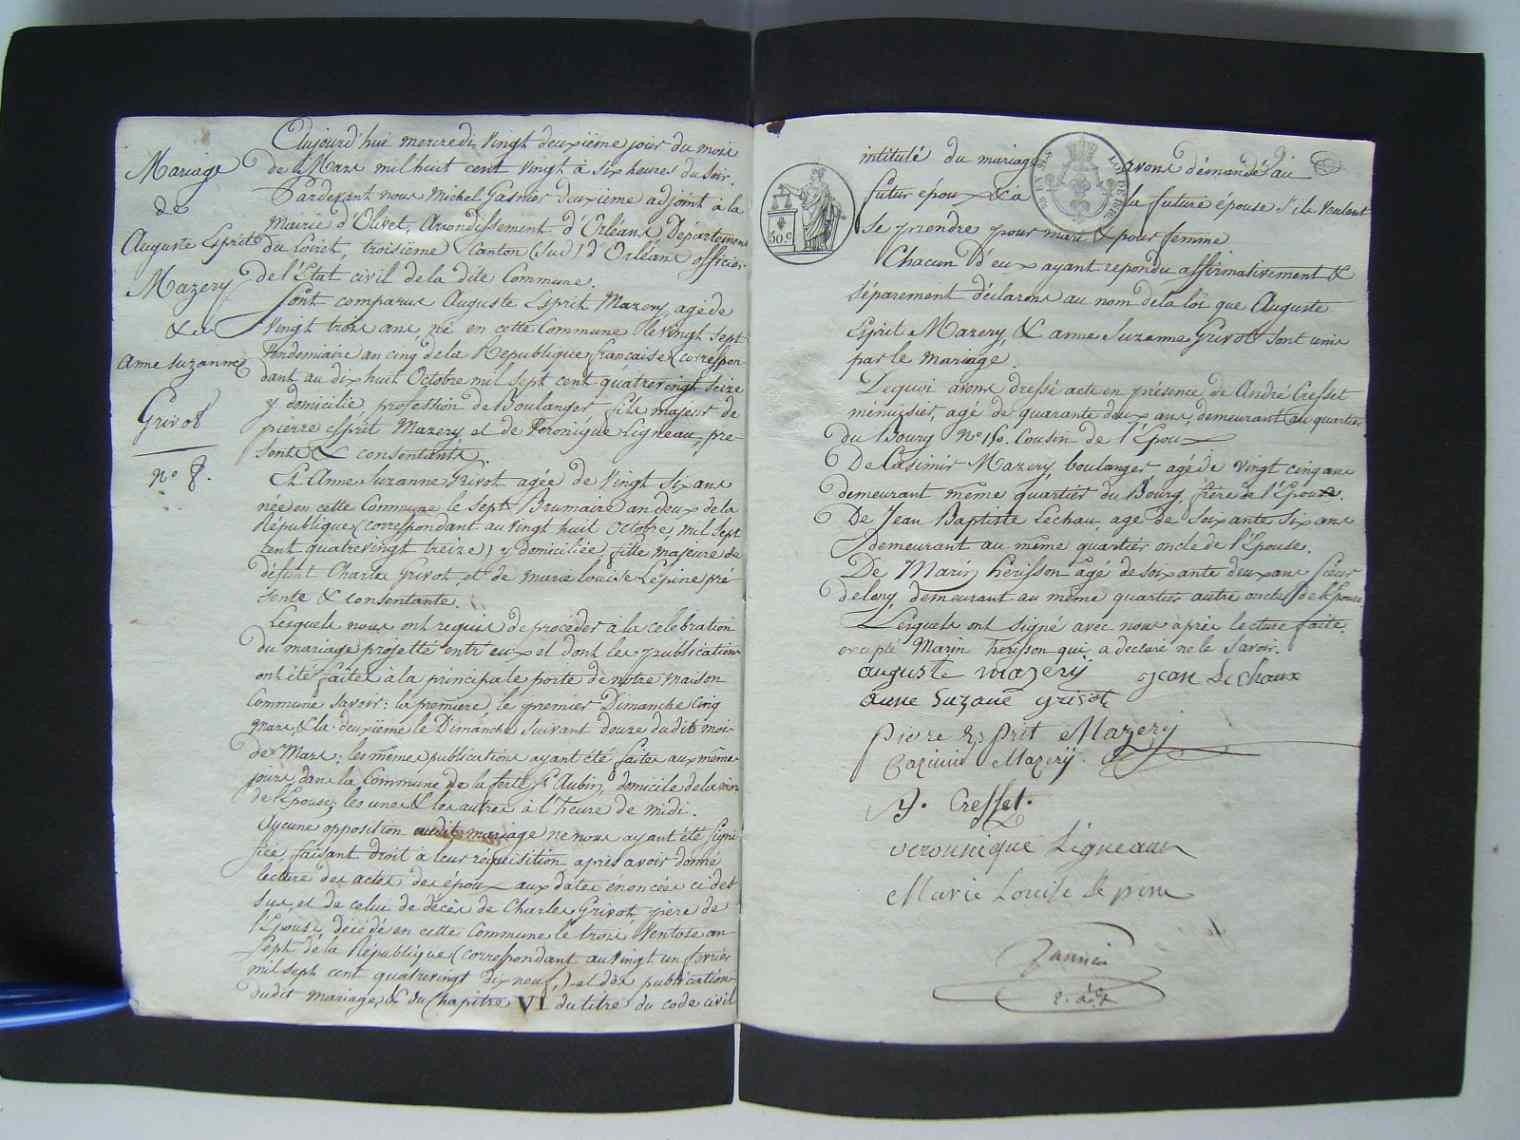 Mariage
de
Auguste Esprit
Mazery
& de
Anne Suzanne
Grivot
n° 8.
Aujourd'hui mercredi vingt deuxième jour du mois
de Mars mil huit cent vingt à six heures du soir.
Pardevant nous Michel Gasnier deuxième adjoint à la
Mairie d'Olivet, Arrondissement d'Orléans Département
du Loiret, troisième Canton (sud) d'Orléans officier
de l'Etat civil de la dite Commune.
Sont comparus Auguste Esprit Mazery, agé de
vingt trois ans né en cette Commune le vingt sept
Vendemiaire an cinq de la République française (correspon-
dant au dix huit Octobre mil sept cent quatrevingt seize
y domicilié, profession de Boulanger, fils majeur de
pierre esprit Mazery et de Veronique Ligneau, pre-
sents & consentants.
Et Anne Suzanne Grivot agée de vingt six ans
née en cette Commune le sept Brumaire an deux de la
République (correspondant au vingt huit Octobre, mil sept
cent quatrevingt treize) y domiciliée, fille majeure de
défunt Charles Grivot, et de marie louise Lépine pré-
sente & consentante.
Lesquels nous ont requis de procéder à la celebration
du mariage projetté entr'eux et dont les publications
ont été faites à la principale porte de notre maison
Commune savoir: la première le premier Dimanche cinq
mars & la deuxième le Dimanche suivant douze dudit mois
de Mars; les mêmes publications ayant été faites aux mêmes
jours, dans la Commune de la ferté St Aubin, domicile de la mère
de l'Epouse, les unes & les autres à l'heure de midi.
Aucune opposition audit mariage ne nous ayant été signi-
fiée faisant droit à leur réquisition après avoir donné
lecture des actes des époux aux dates énoncées ci des-
sus, et de celui de décès de Charles Grivot, père de
l'Epouse, décédé en cette Commune le trois Ventose an
sept de la République (correspondant au vingt un fevrier
mil sept cent quatrevingt dix neuf,) et des publications
dudit mariage, & du Chapitre VI du titre du code civil
intitulé du mariage avons démandé au
futur epoux & à la future épouse s'ils veulent
se prendre pour mari & pour femme
50 c
Chacun d'eux ayant repondu affirmativement &
séparement déclarons au nom de la loi que Auguste
Esprit Mazery, & anne Suzanne Grivot sont unis
par le mariage.
Dequoi avons dressé acte en présence de André Cresset
ménuisier, agé de quarante deux ans, demeurant au quartier
du Bourg N° 150. Cousin de l'Epoux
De Casimir Mazery boulanger, agé de vingt cinq ans
demeurant même quartier du Bourg, frère de l'Epoux.
De Jean Baptiste Lechau, agé de soixante six ans
demeurant au même quartier oncle de l'Epouse.
De Marin hérisson agé de soixante deux ans
demeurant au même quartier autre oncle de l'Epouse
Lesquels ont signé avec nous après lecture faite,
excepté Marin herisson qui a declaré ne le savoir.
auguste mazery
Jean Lechaux
anne Suzane grivot
Pierre Esprit Mazery
Cazimir Mazery.
A. Cresset.
veronnique Ligneaux
Marie Louise Lépine
Gasnier
2. adjt